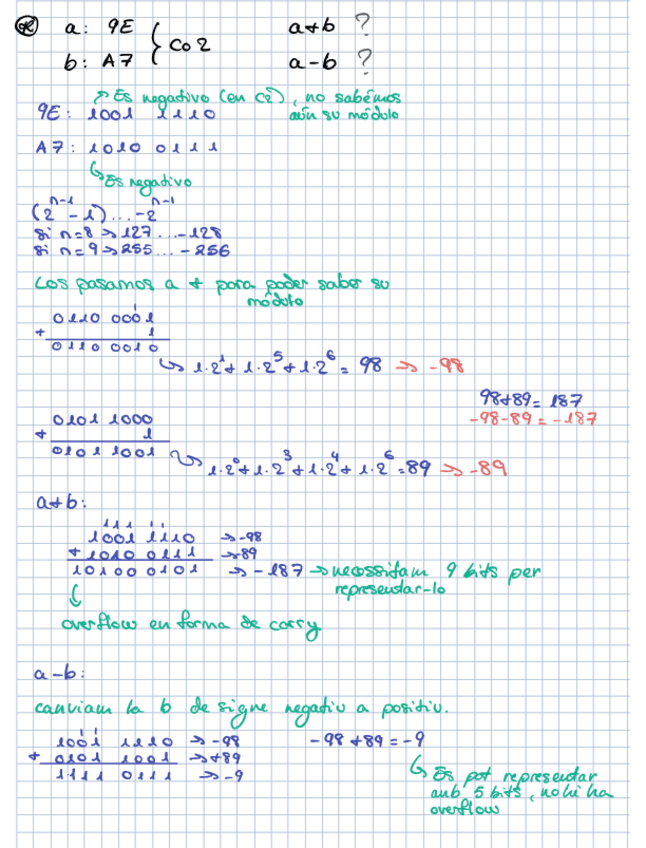 a: 9E } Co2 a+b ?
b: A7 a-b ?
↗ Es negativo (en C2), no sabemos
9E: 1001 1110 aún su módulo
A7: 1010 0111
↳ Es negativo
(2^{n-1} - 1) ... -2^{n-1}
si n=8 → 127 ... -128
si n=9 → 255 ... -256
Los pasamos a + para poder saber su
módulo
1
0110 0001
+ 1
0110 0010
↳ 1·2^1 + 1·2^5 + 1·2^6 = 98 ⇒ -98
98+89 = 187
-98-89 = -187
0101 1000
+ 1
0101 1001
↳ 1·2^0 + 1·2^3 + 1·2^4 + 1·2^6 = 89 ⇒ -89
a+b:
111 11
1001 1110 → -98
+ 1010 0111 → 89
10100 0101 → -187 → necessitam 9 bits per
representar-lo
↳
overflow en forma de carry
a-b:
canviam la b de signe negatiu a positiu.
1 1
1001 1110 → -98 -98 + 89 = -9
+ 0101 1001 → +89
1111 0111 → -9 ↳ Es pot representar
amb 5 bits, no hi ha
overflow